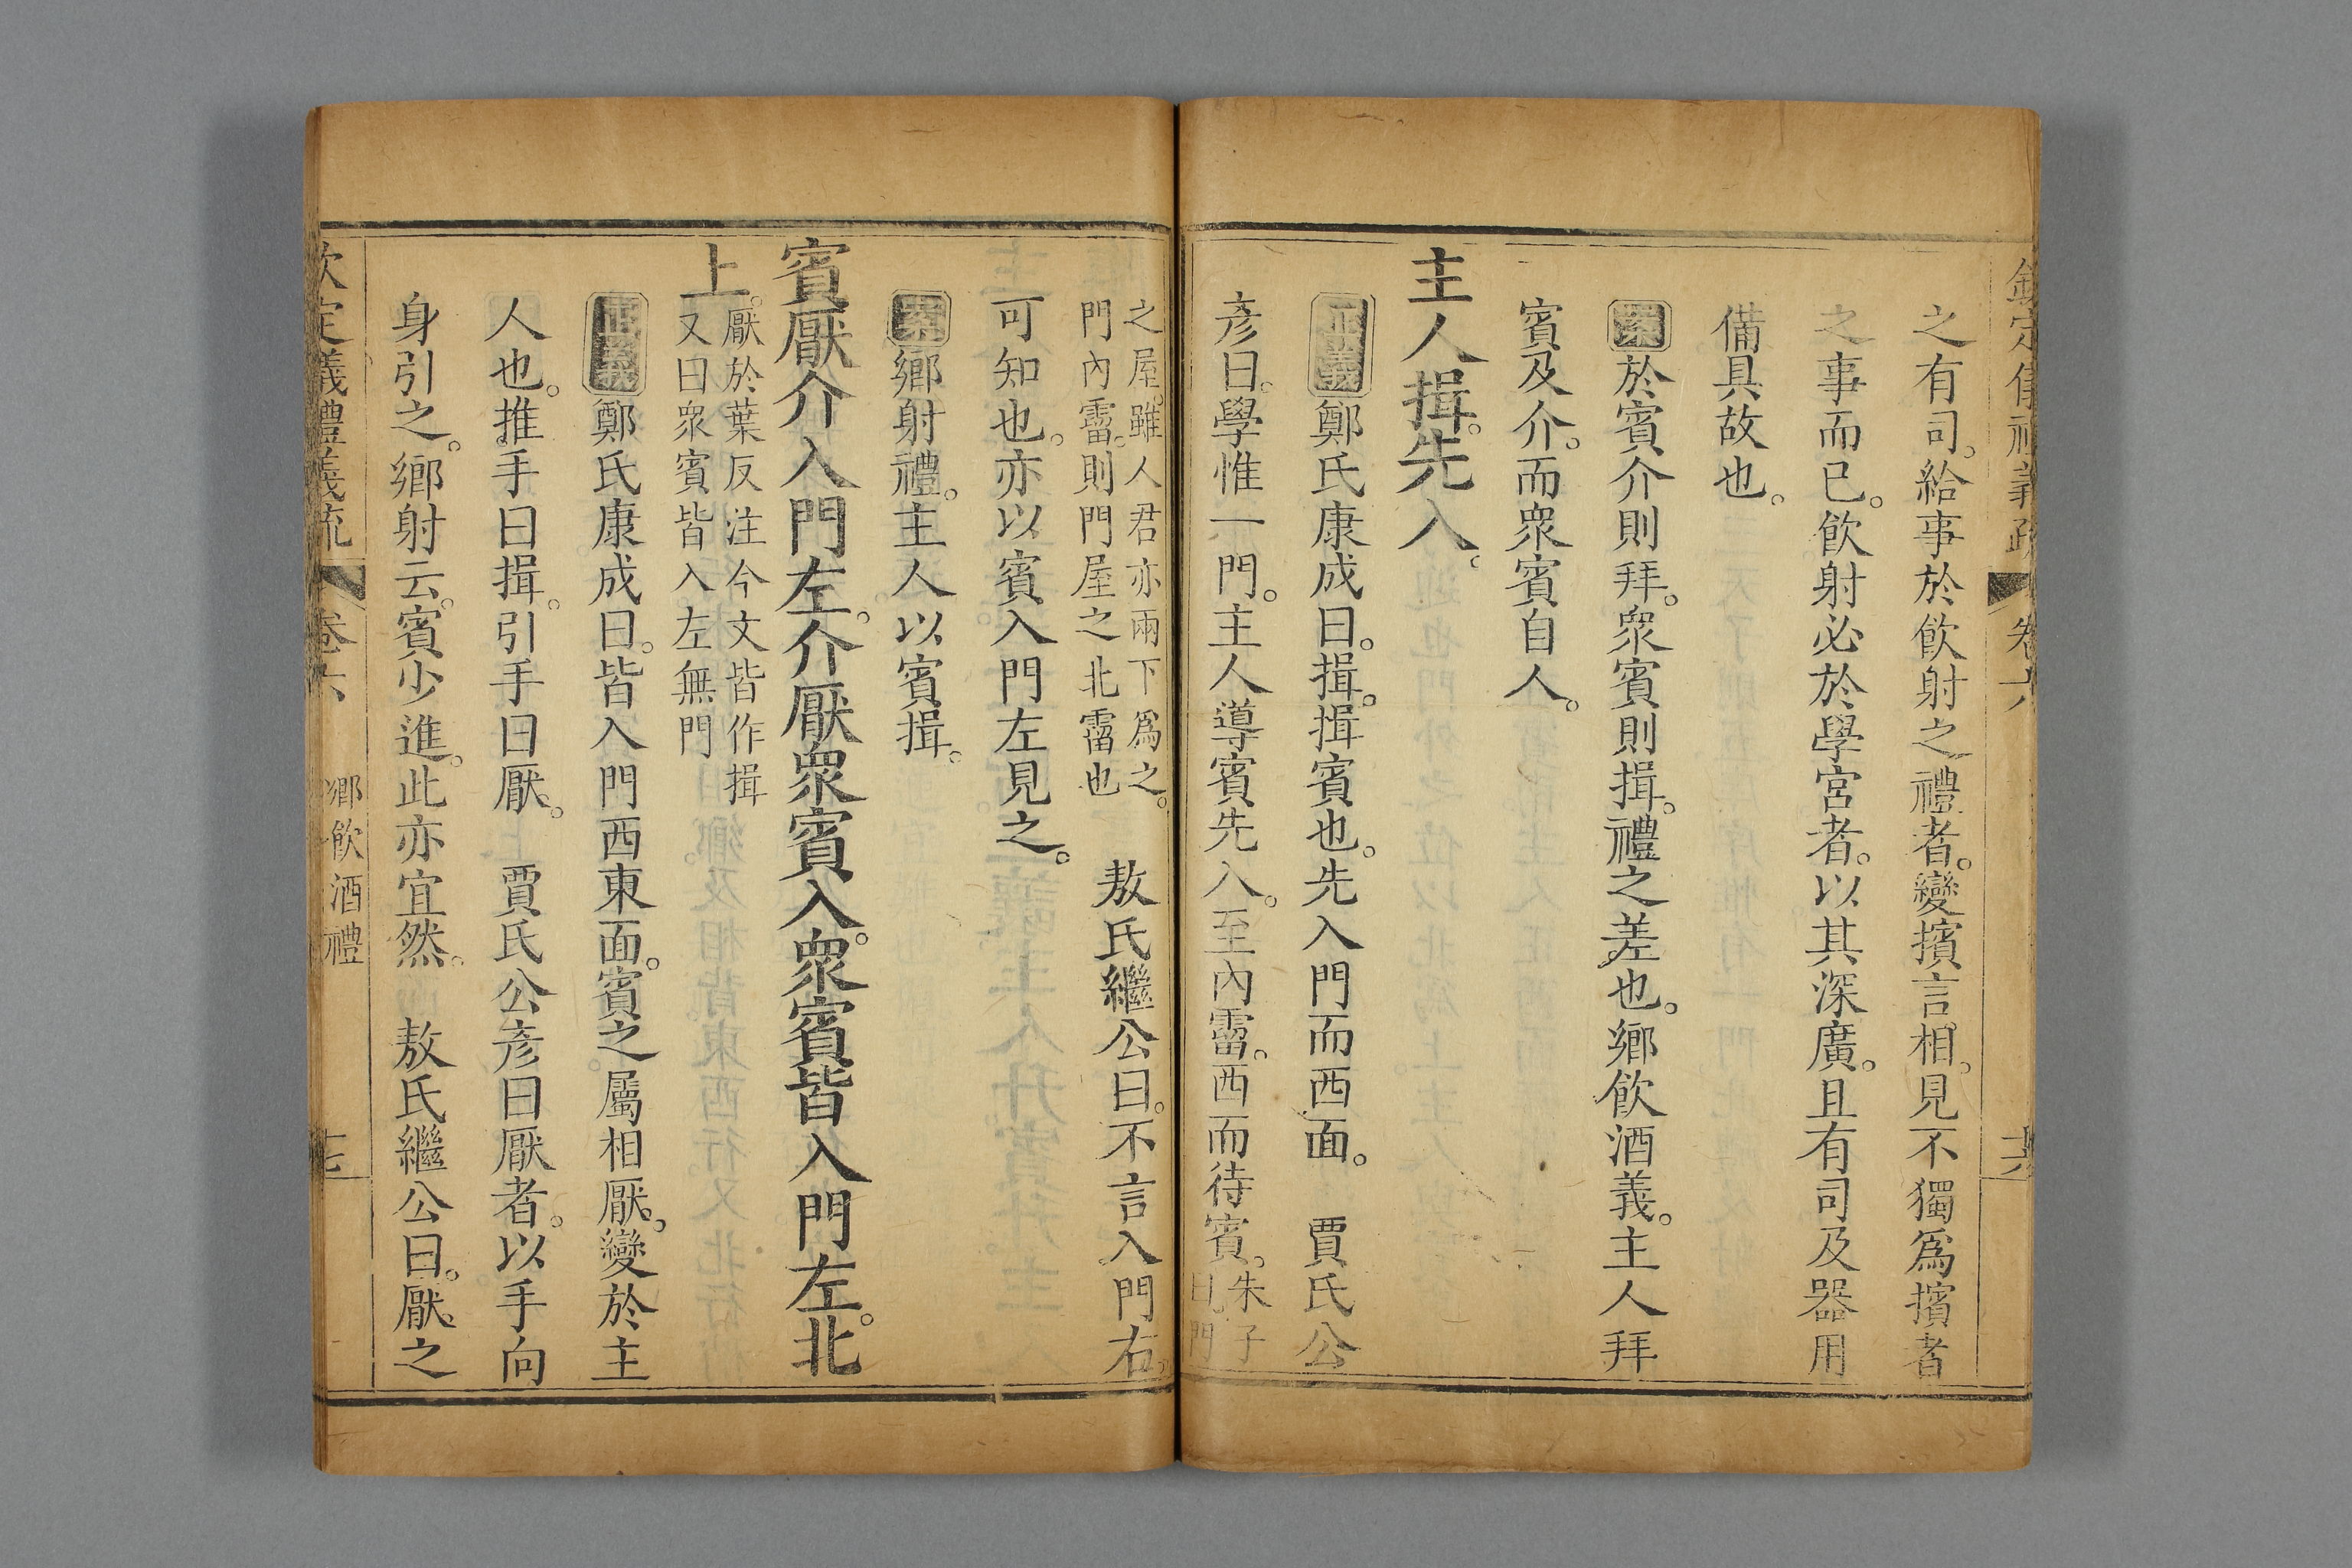 欽定儀禮義疏 卷六 十六
之有司。給事於飲射之禮者。變擯言相。見不獨爲擯者
之事而已。飲射必於學宮者。以其深廣。且有司及器用
備具故也。
案於賓介則拜。眾賓則揖。禮之差也。鄉飲酒義。主人拜
賓及介。而眾賓自入。
主人揖。先入。
正義鄭氏康成曰。揖。揖賓也。先入門而西面。 賈氏公
彥曰。學惟一門。主人導賓先入。至內霤。西而待賓。朱子
曰。門
之屋。雖人君亦兩下爲之。
門內霤。則門屋之北霤也
敖氏繼公曰。不言入門右。
可知也。亦以賓入門左見之。
案鄉射禮。主人以賓揖。
賓厭介入門左。介厭眾賓入。眾賓皆入門左。北
上。
厭於葉反注今文皆作揖
又曰眾賓皆入左無門
正義鄭氏康成曰。皆入門西東面。賓之屬相厭。變於主
人也。推手曰揖。引手曰厭。 賈氏公彥曰厭者。以手向
身引之。鄉射云。賓少進。此亦宜然。 敖氏繼公曰。厭之
欽定儀禮義疏 卷六 鄉飲酒禮 十七